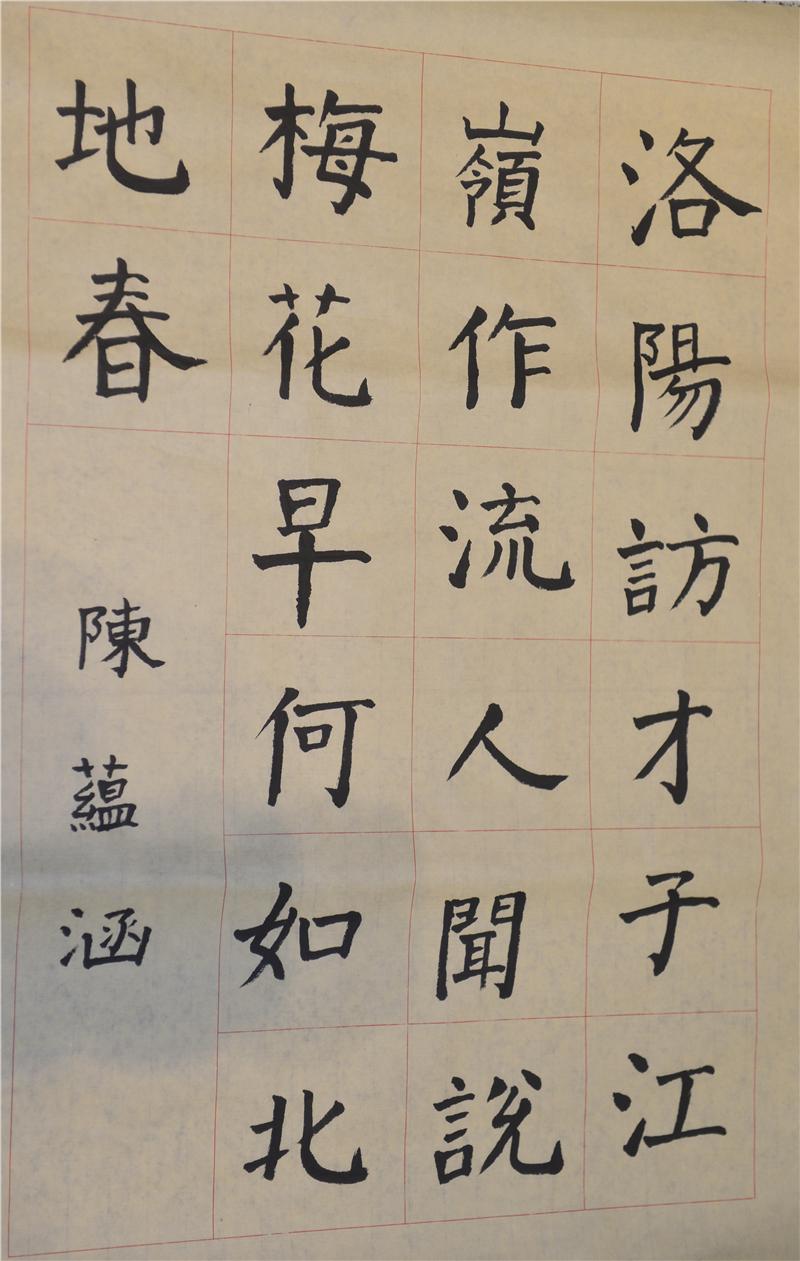 洛陽訪才子江
嶺作流人聞説
梅花早何如北
地春
陳蘊涵